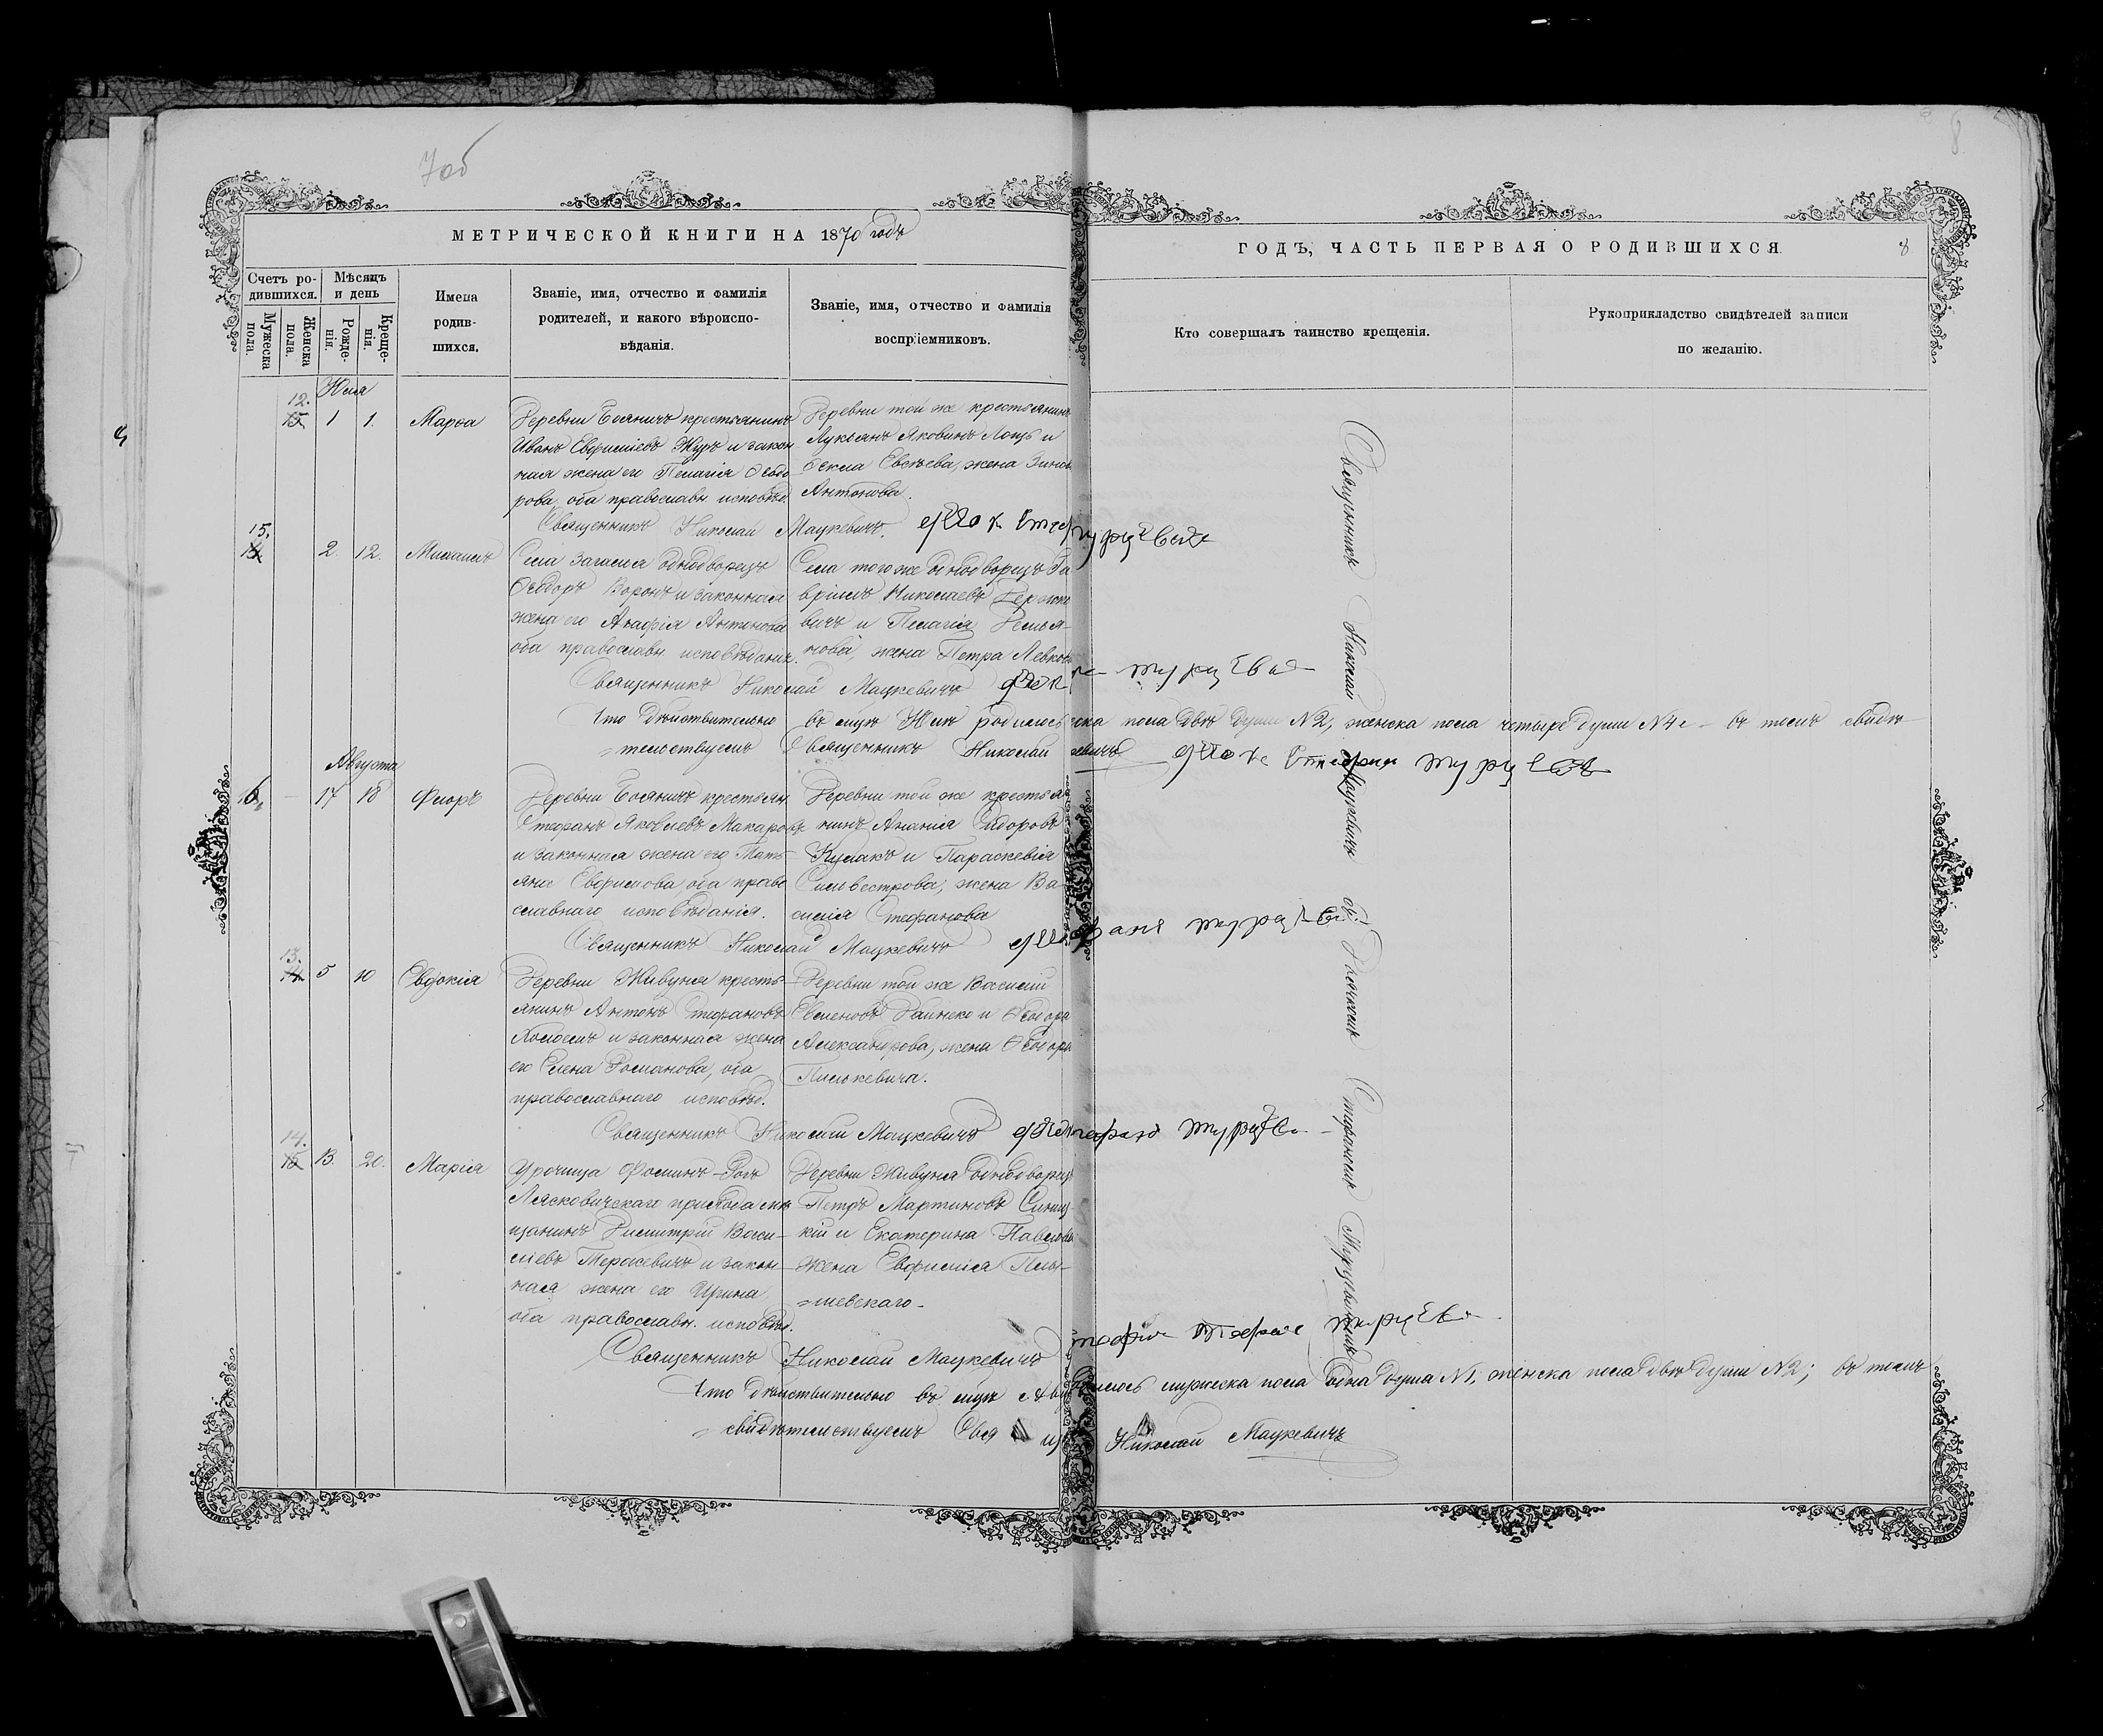 7об
8
МЕТРИЧЕСКОЙ КНИГИ НА 1870 годъ
ГОДЪ, ЧАСТЬ ПЕРВАЯ О РОДИВШИХСЯ.
8
Счетъ ро-
дившихся.
Мѣсяцъ
и день
Мужеска
пола.
Женска
пола.
Рожде-
нія.
Креще-
нія.
Имена
родив-
шихся.
Званіе, имя, отчество и фамилія
родителей, и какого вѣроиспо-
вѣданія.
Званіе, имя, отчество и фамилія
воспріемниковъ.
Кто совершалъ таинство крещенія.
Рукоприкладство свидѣтелей записи
по желанію.
Юля
12.
1 1. Марѳа
Деревни Бояничъ крестьянинъ
Иванъ Евфиміевъ Журъ и закон
ная жена его Пелагія Ѳеодо
рова, оба православн. исповѣд.
Деревни той же крестьянинъ
Лукьянъ Яковинъ Лощъ и
Ѳекла Евсѣева, жена
Антонова.
Священникъ Николай Мацкевичъ.
15.
2. 12. Михаилъ
Села Загалья однодворецъ
Ѳеодоръ Воронъ и законная
жена его Агафія Антонова
оба православн. исповѣданія.
Села того же однодворецъ Га
вріилъ Николаевъ
вичъ и Пелагія Демья-
нова, жена Петра
Священникъ Николай Мацкевичъ
Что дѣйствительно въ мцѣ Юлѣ родилось мужеска пола двѣ души N 2, женска пола четыре души N 4е – въ томъ свидѣ
=тельствуемъ Священникъ Николай Мацкевичъ
Августа
16. – 17 18 Флоръ
Деревни Бояничъ крестьян.
Стефанъ Яковлевъ Макаровъ
и законная жена его Тать-
яна Евфимова, оба право
славнаго исповѣданія.
Деревни той же крестья
нинъ Ананія Сидоровъ
Кулакъ и Параскевія
Сильвестрова, жена Ва-
силія Стефанова
Священникъ Николай Мацкевичъ
13.
5 10 Евдокія
Деревни Живуня кресть-
янинъ Антонъ Стефановъ
и законная жена
его Елена Романова, оба
православнаго исповѣд.
Деревни той же Василій
и Ѳеодора
Александрова, жена Ѳеодора
Пилькевича.
Священникъ Николай Мацкевичъ
14.
13. 20. Марія
Урочища Фоминъ-Родъ
Лясковичскаго прихода мѣ
щанинъ Димитрій Васи-
ліевъ Терасевичъ и закон
ная жена его Ирина
оба православн. исповѣд.
Деревни Живуня однодворецъ
Петръ Мартиновъ
кій и Екатерина Павлова
жена Евфимія
=шевскаго.
Священникъ Николай Мацкевичъ
Что дѣйствительно въ мцѣ Августѣ родилось мужеска пола одна душа N 1, женска пола двѣ души N 2; въ томъ
=свидѣтельствуемъ Священникъ Николай Мацкевичъ
Священникъ Николай Мацкевичъ съ Дьячкомъ Стефаномъ